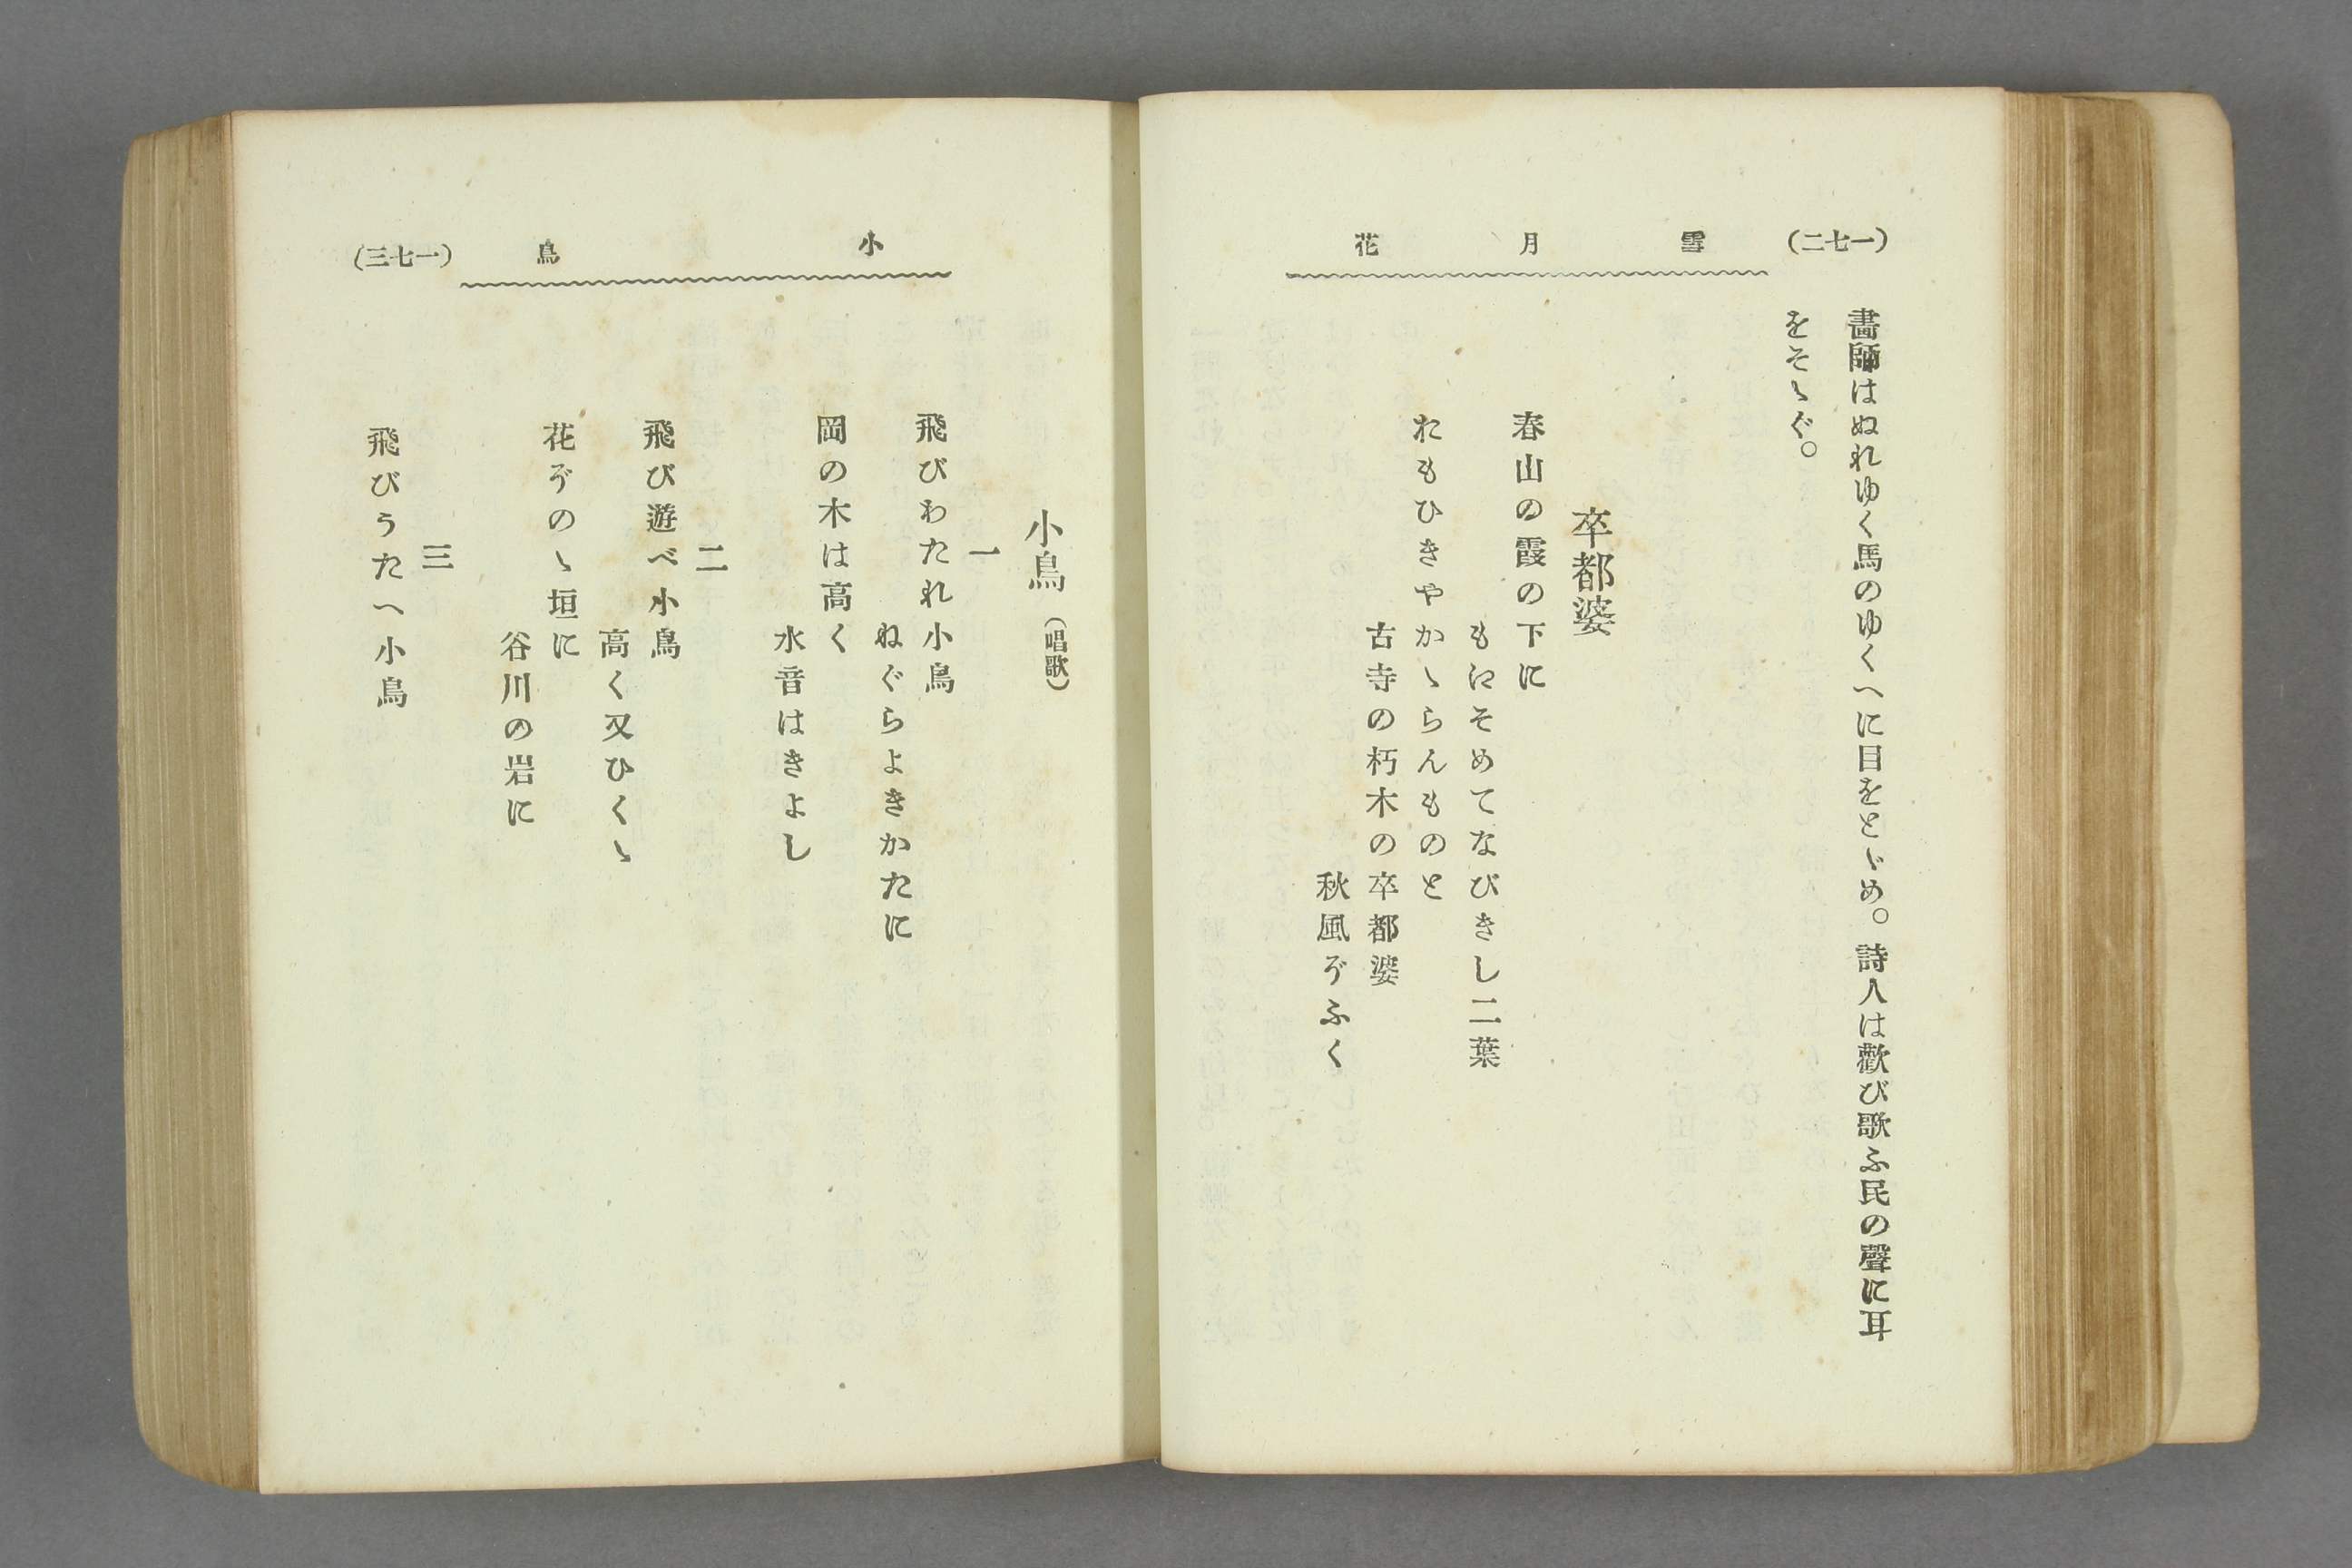 （一七二）
雪月花
畵師はぬれゆく馬のゆくへに目をとゞめ。詩人は歡び歌ふ民の聲に耳
をそゝぐ。
卒都婆
春山の霞の下に
もえそめてなびきし二葉
おもひきやかゝらんものと
古寺の朽木の卒都婆
秋風ぞふく
小鳥
（一七三）
小鳥（唱歌）
一
飛びわたれ小鳥
ねぐらよきかたに
岡の木は高く
水音はきよし
二
飛び遊べ小鳥
高く又ひくゝ
花ぞのゝ垣に
谷川の岩に
三
飛びうたへ小鳥